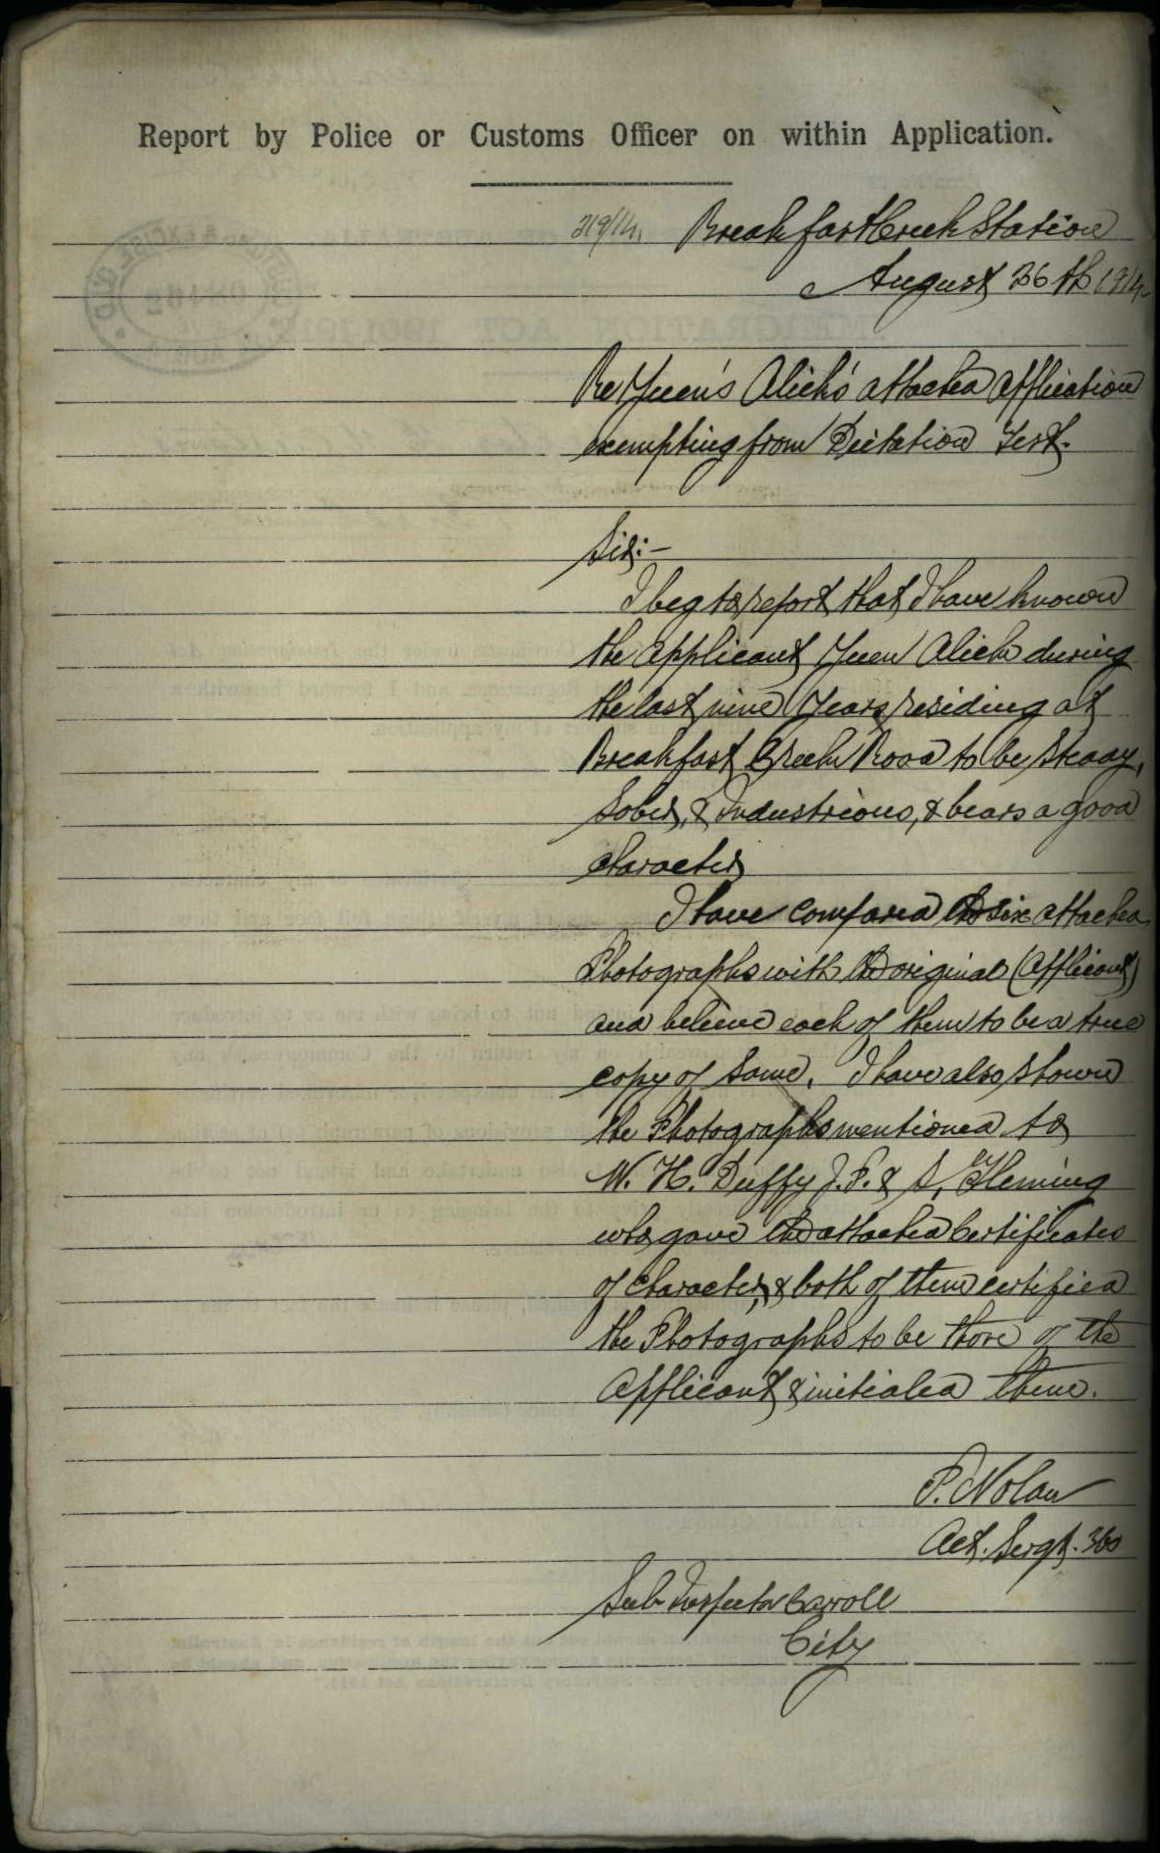 Report by Police or Customs Officer on within Application.
319/14. Breakfast Creek Station
August 26th 1914
Re Yuen's Alick's attached application
exempting from Dictation Test.
Sir:-
I beg to report that I have known
the applicant Yuen Alick during
the last nine Years residing at
Breakfast Creek Road to be steady,
Sober, & Industrious, & bears a good
character
I have compared the six attached
Photographs with the original (applicant)
and believe each of them to be a true
copy of same. I have also shown
the Photographs mentioned to
W. H. Duffy J.P. & S. Fleming
who gave the attached Certificates
of character, & both of them certified
the Photographs to be those of the
applicant & initialed them.
P. Nolan
Act. Sergt. 360
Sub Inspector Carroll
City